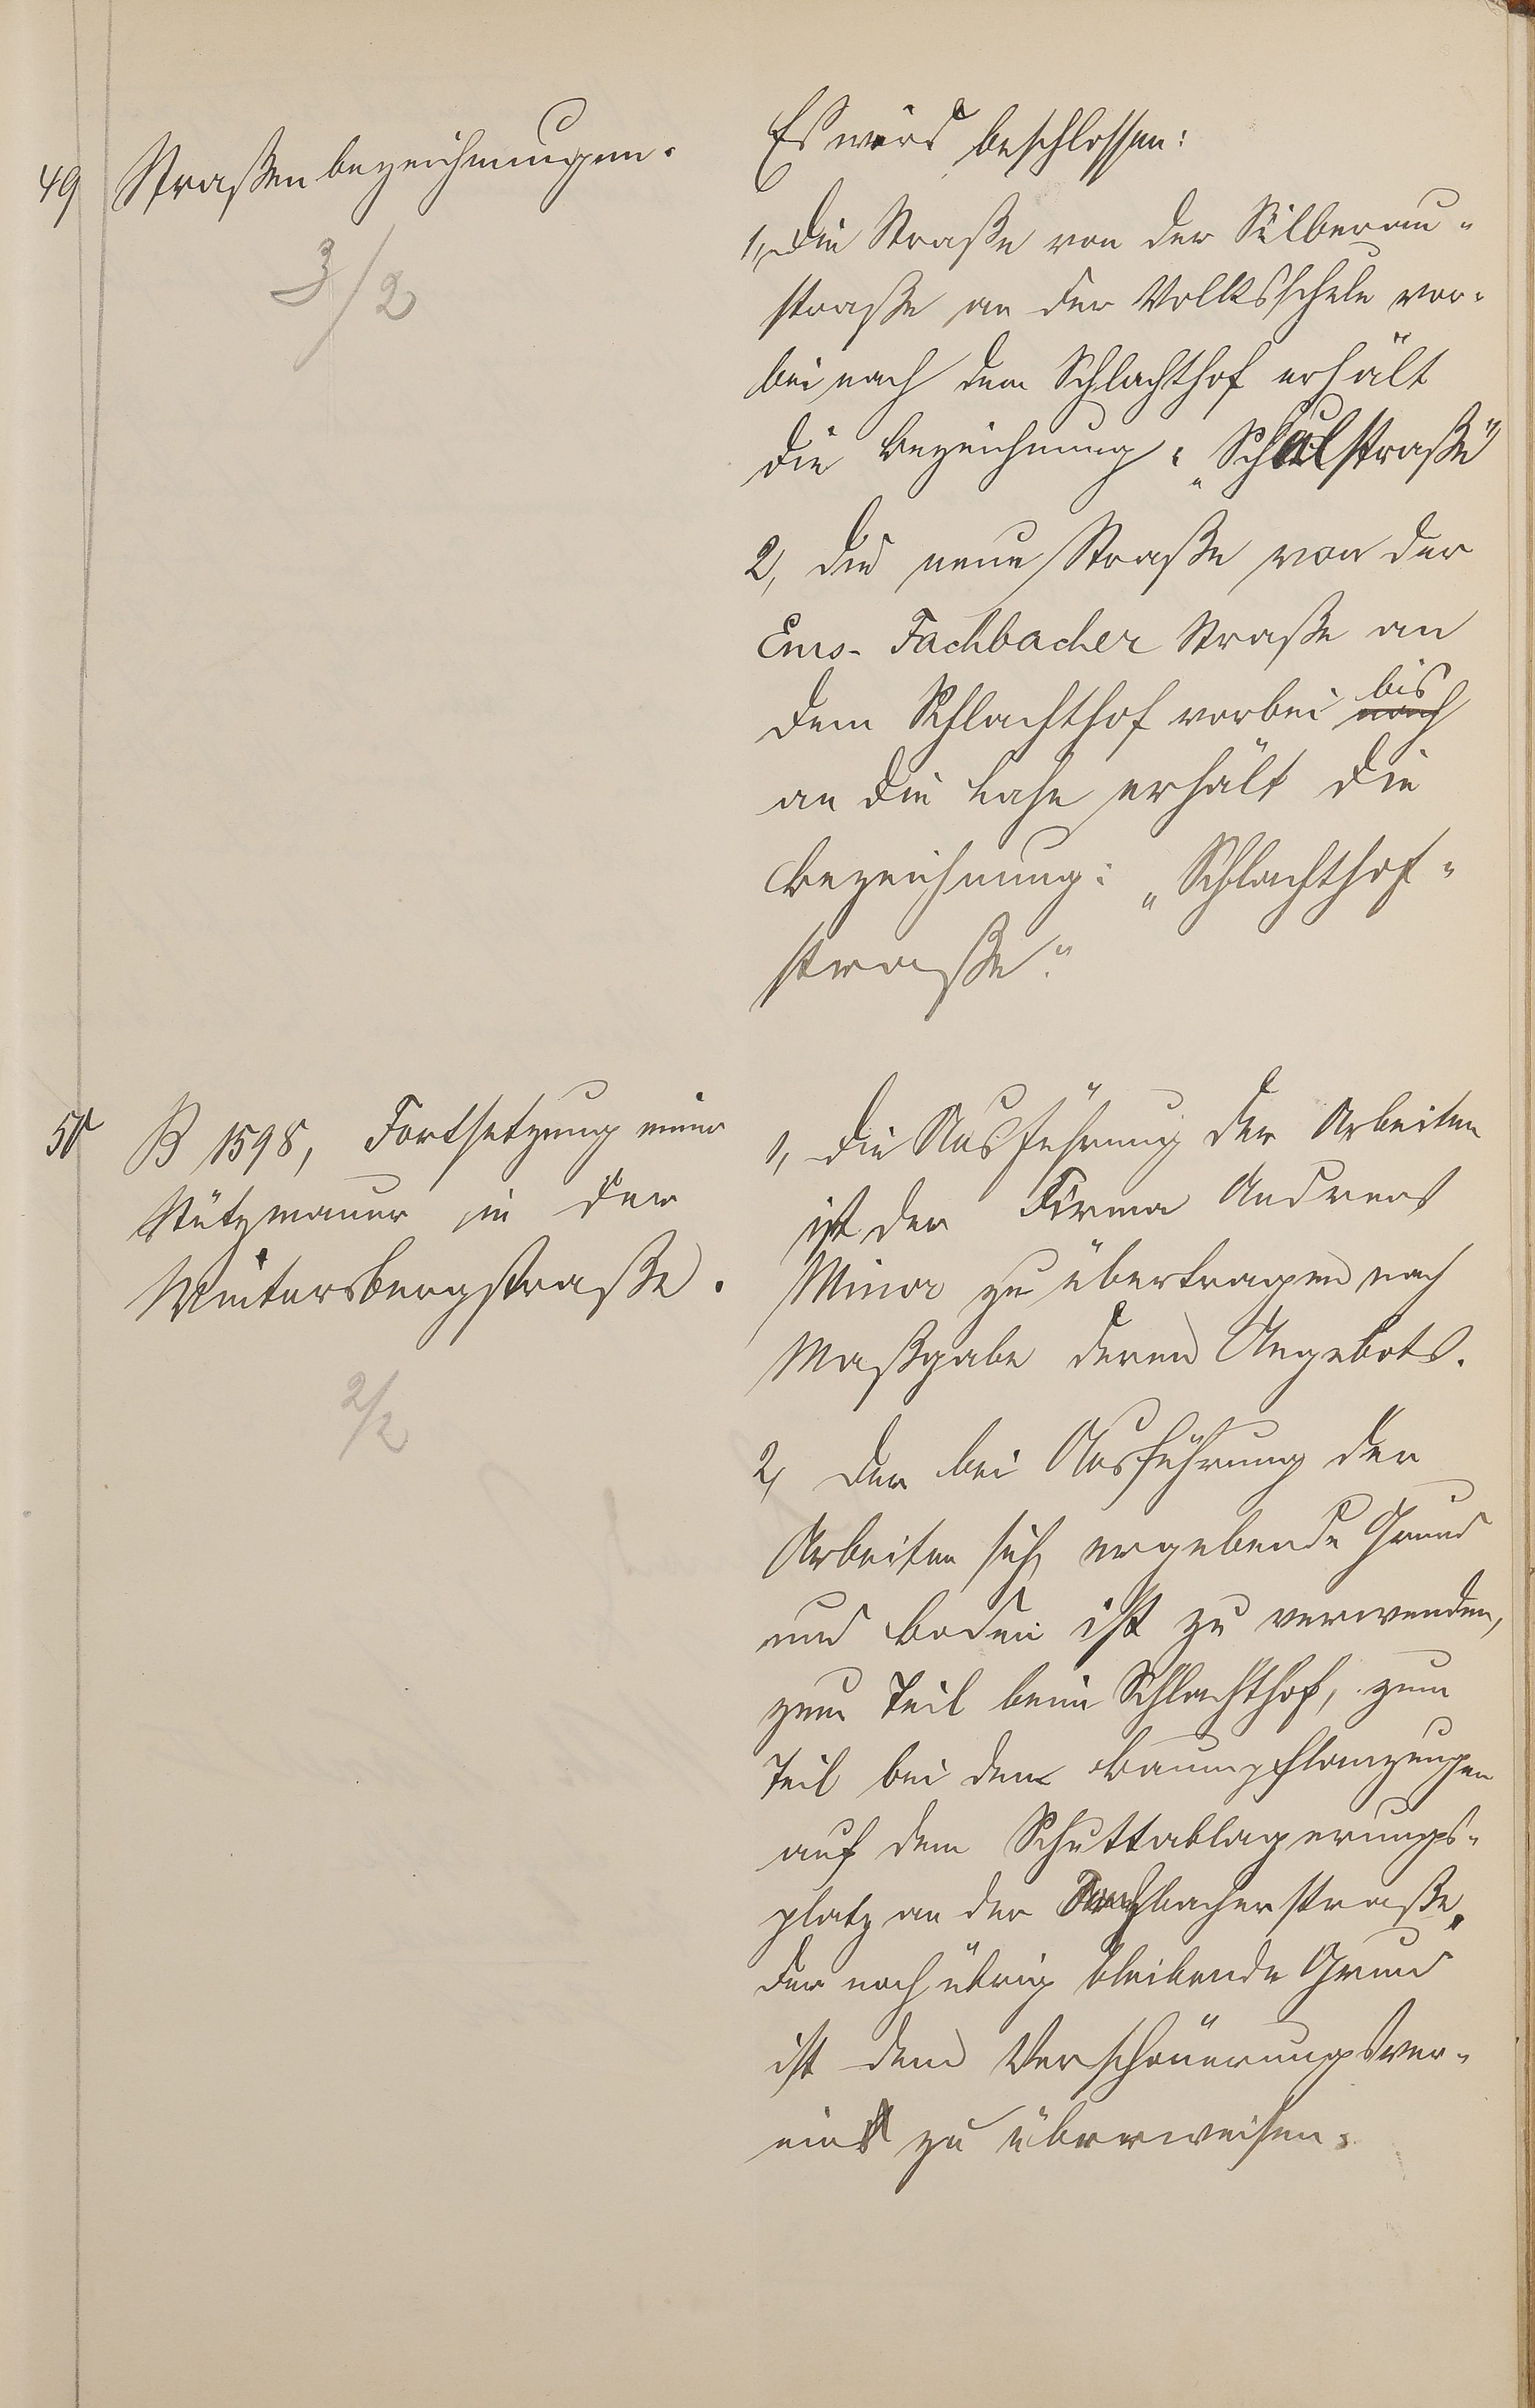 49 Straßenbezeichnungen.
3/2
Es wird beschlossen:
1, Die Straße von der Silberau-
straße an der Volksschule vor-
bei nach dem Schlachthof erhält
die Bezeichnung: „Schulstraße“
2, die neue Straße von der
Ems-Fachbacher Straße an
dem Schlachthof vorbei bis
nach
an die Lahn erhält die
Bezeichnung: „Schlachthof-
straße.“
50 B 1598, Fortsetzung einer
Stützmauer in der
Wintersbergstraße.
2/2
1, Die Ausführung der Arbeiten
ist der Firma Andreas
Minor zu übertragen nach
Maßgabe deren Angebots.
2, Der bei Ausführung der
Arbeiten sich ergebende Grund
und Boden ist zu verwenden,
zum Teil beim Schlachthof, zum
Teil bei den Baumpflanzungen
auf dem Schuttablagerungs-
platz an der Fachbacherstraße,
der noch übrig bleibende Grund
ist dem Verschönerungsver-
ein zu überweisen.